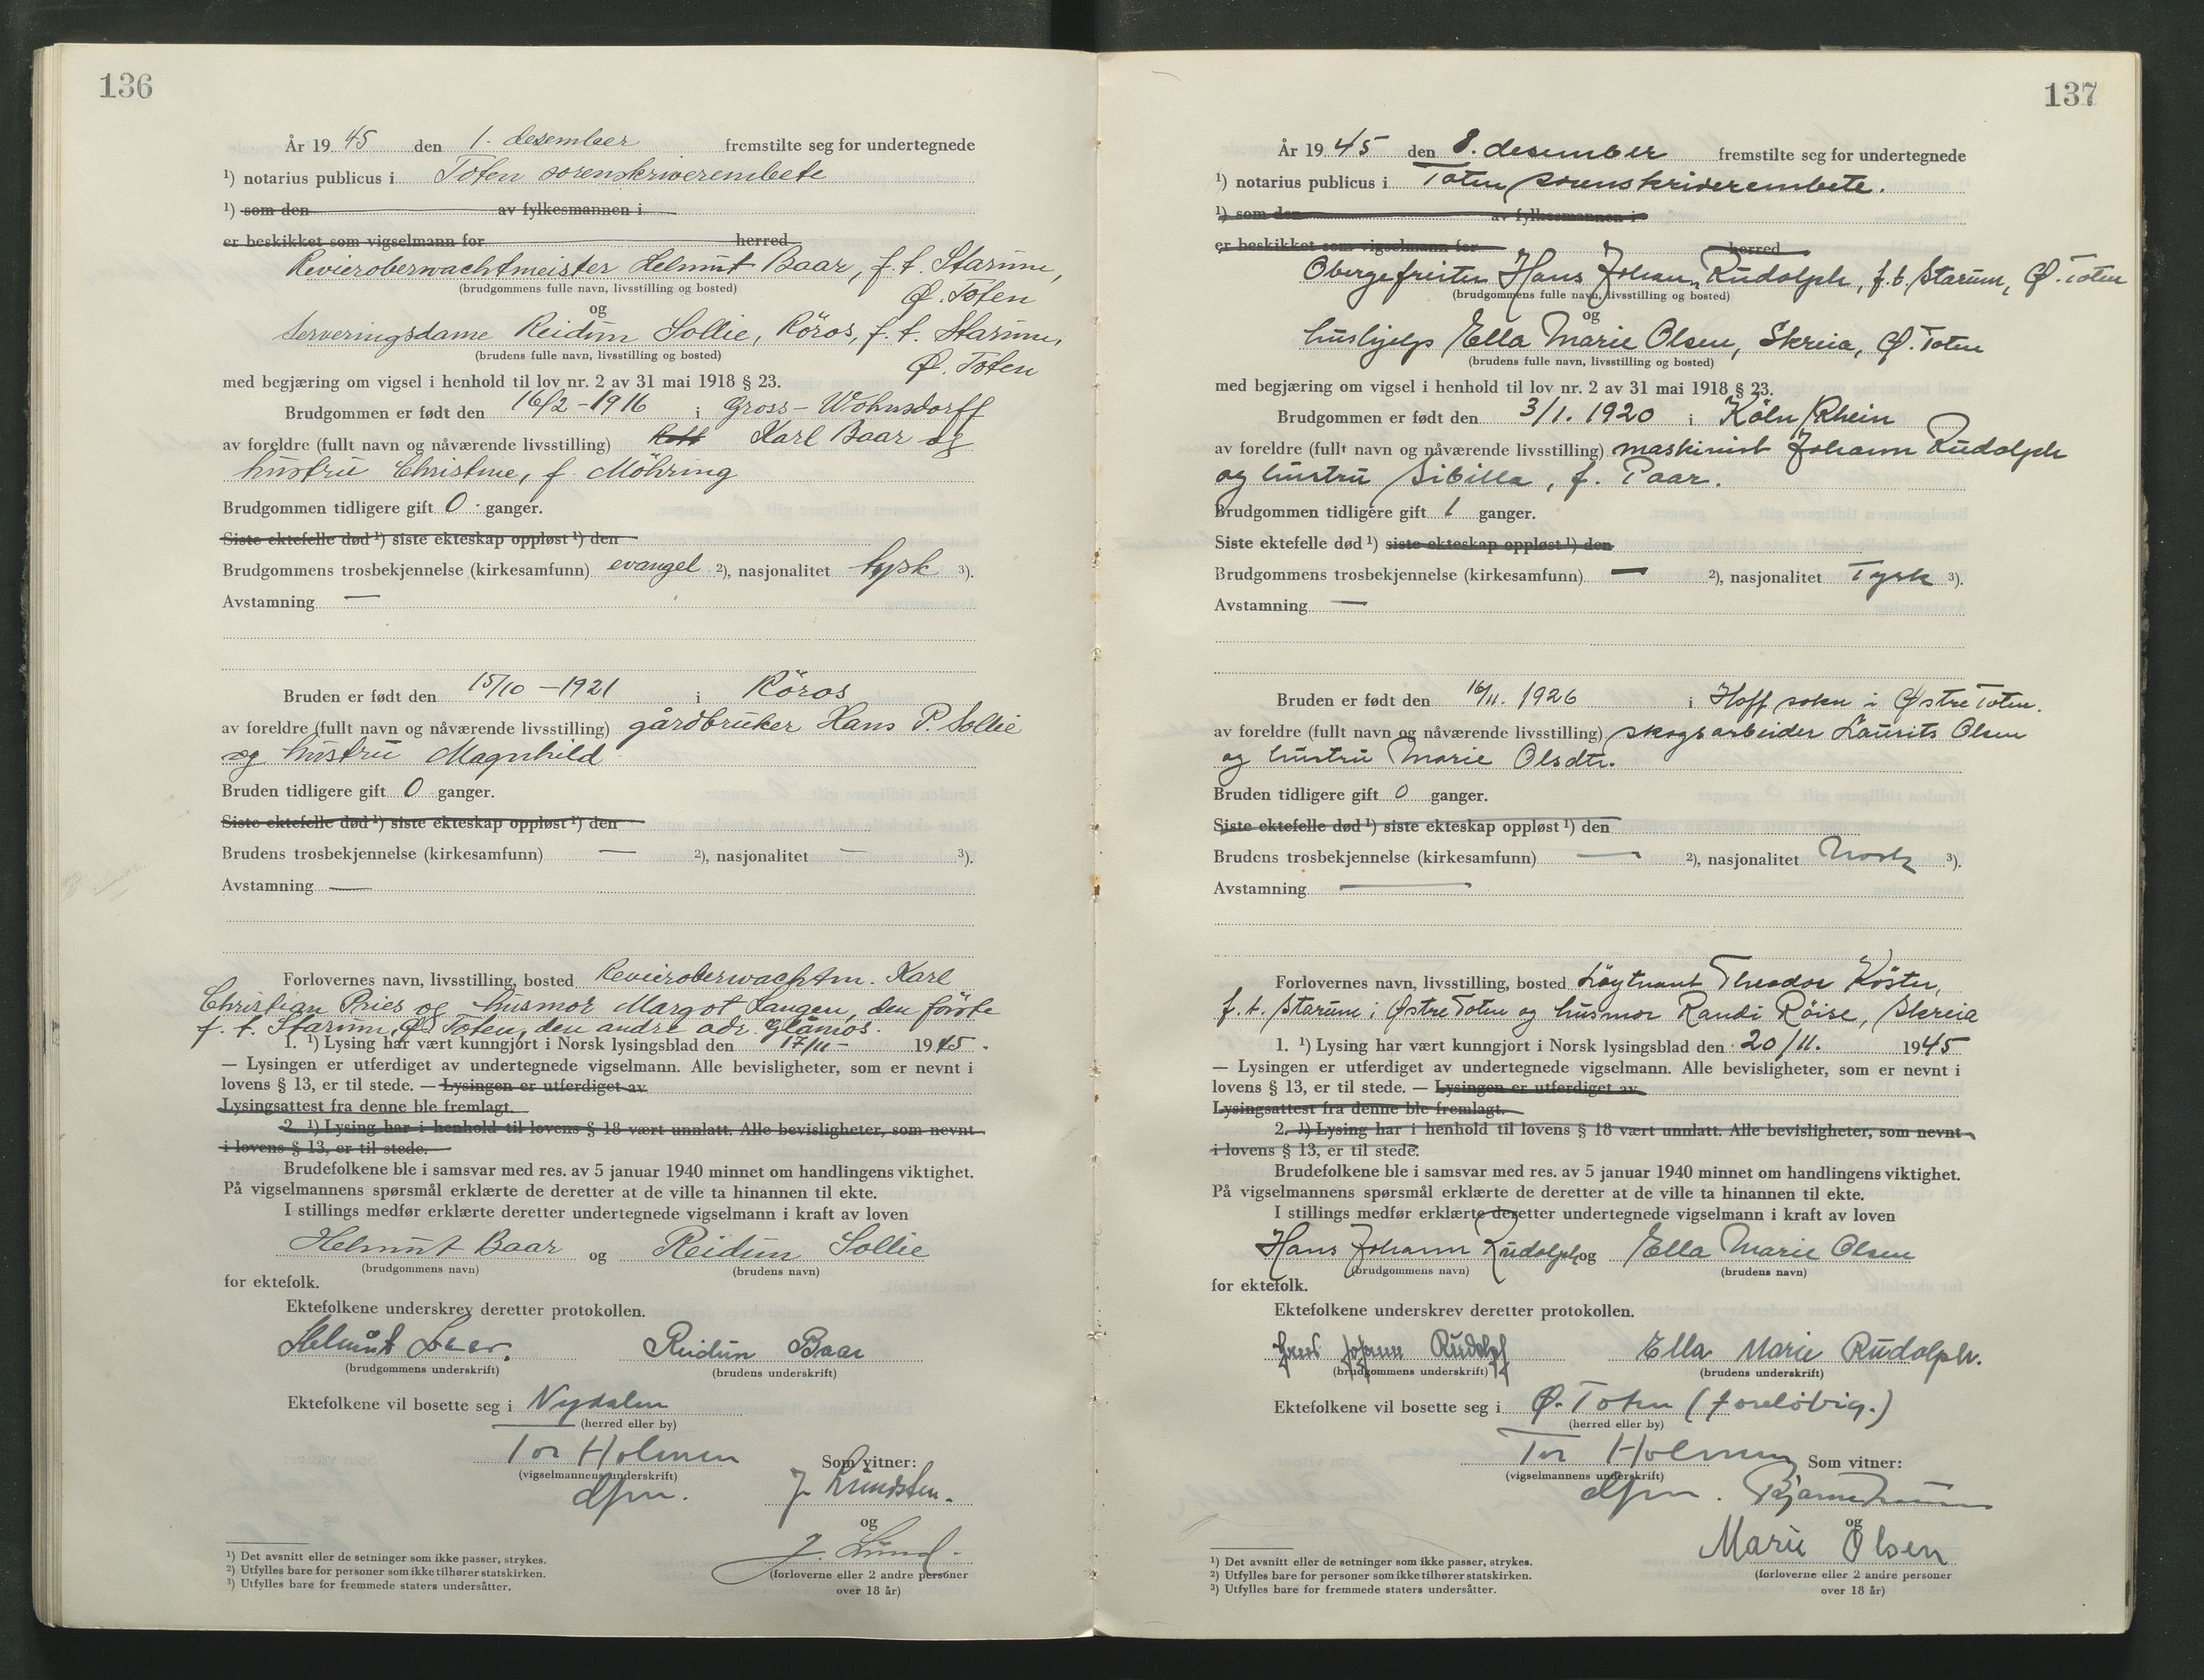 136
År 19 45 den 1. desember fremstilte seg for undertegnede
¹) notarius publicus i Toten sorenskriverembete
¹) som den av fylkesmannen i
er beskikket som vigselmann for herred
Revieroberwachtmeister Helmut Baar, f. t. Starum,
(brudgommens fulle navn, livsstilling og bosted) Ø. Toten
og
Serveringsdame Reidun Sollie, Röros, f. t. Starum,
(brudens fulle navn, livsstilling og bosted) Ø. Toten
med begjæring om vigsel i henhold til lov nr. 2 av 31 mai 1918 § 23.
Brudgommen er født den 16/2 - 1916 i Gross - Wohnsdorff
av foreldre (fullt navn og nåværende livsstilling) Karl Baar og
hustru Christine, f. Möhring
Brudgommen tidligere gift 0 ganger.
Siste ektefelle død ¹) siste ekteskap oppløst ¹) den
Brudgommens trosbekjennelse (kirkesamfunn) evangel ²), nasjonalitet tysk ³).
Avstamning —
Bruden er født den 15/10 - 1921 i Röros
av foreldre (fullt navn og nåværende livsstilling) gårdbruker Hans P. Sollie
og hustru Magnhild
Bruden tidligere gift 0 ganger.
Siste ektefelle død ¹) siste ekteskap oppløst ¹) den
Brudens trosbekjennelse (kirkesamfunn) — ²), nasjonalitet — ³).
Avstamning —
Forlovernes navn, livsstilling, bosted Revieroberwachtm. Karl
Christian Pries og husmor Margot Langen, den förste
f. t. Starum, Ø. Toten, den andre adr. Glåmos.
1. ¹) Lysing har vært kunngjort i Norsk lysingsblad den 17/11 - 1945.
— Lysingen er utferdiget av undertegnede vigselmann. Alle bevisligheter, som er nevnt i
lovens § 13, er til stede. — Lysingen er utferdiget av
Lysingsattest fra denne ble fremlagt.
2. ¹) Lysing har i henhold til lovens § 18 vært unnlatt. Alle bevisligheter, som nevnt
i lovens § 13, er til stede.
Brudefolkene ble i samsvar med res. av 5 januar 1940 minnet om handlingens viktighet.
På vigselmannens spørsmål erklærte de deretter at de ville ta hinannen til ekte.
I stillings medfør erklærte deretter undertegnede vigselmann i kraft av loven
Helmut Baar og Reidun Sollie
(brudgommens navn) (brudens navn)
for ektefolk.
Ektefolkene underskrev deretter protokollen.
Helmut Baar. Reidun Baar
(brudgommens underskrift) (brudens underskrift)
Ektefolkene vil bosette seg i Nydalen
(herred eller by)
Tor Holmen Som vitner:
(vigselmannens underskrift)
dfm. J. Lundsten.
og
J. Lund.
(forloverne eller 2 andre personer
over 18 år)
¹) Det avsnitt eller de setninger som ikke passer, strykes.
²) Utfylles bare for personer som ikke tilhører statskirken.
³) Utfylles bare for fremmede staters undersåtter.
137
År 19 45 den 8. desember fremstilte seg for undertegnede
¹) notarius publicus i Toten sorenskriverembete.
¹) som den av fylkesmannen i
er beskikket som vigselmann for herred
Obergefreiter Hans Johann Rudolph, f.t. Starum, Ø. Toten
(brudgommens fulle navn, livsstilling og bosted)
og
hushjelp Ella Marie Olsen, Skreia, Ø. Toten
(brudens fulle navn, livsstilling og bosted)
med begjæring om vigsel i henhold til lov nr. 2 av 31 mai 1918 § 23.
Brudgommen er født den 3/1. 1920 i Köln/Rhein
av foreldre (fullt navn og nåværende livsstilling) maskinist Johann Rudolph
og hustru Sibilla, f. Paar.
Brudgommen tidligere gift 1 ganger.
Siste ektefelle død ¹) siste ekteskap oppløst ¹) den
Brudgommens trosbekjennelse (kirkesamfunn) — ²), nasjonalitet Tysk ³).
Avstamning —
Bruden er født den 16/11. 1926 i Hoff sokn i Østre Toten.
av foreldre (fullt navn og nåværende livsstilling) skogsarbeider Laurits Olsen
og hustru Marie Olsdtr.
Bruden tidligere gift 0 ganger.
Siste ektefelle død ¹) siste ekteskap oppløst ¹) den
Brudens trosbekjennelse (kirkesamfunn) — ²), nasjonalitet Norsk ³).
Avstamning —
Forlovernes navn, livsstilling, bosted Löytnant Theodor Köster,
f.t. Starum i Østre Toten og husmor Randi Röise, Skreia
1. ¹) Lysing har vært kunngjort i Norsk lysingsblad den 20/11. 1945
— Lysingen er utferdiget av undertegnede vigselmann. Alle bevisligheter, som er nevnt i
lovens § 13, er til stede. — Lysingen er utferdiget av
Lysingsattest fra denne ble fremlagt.
2. ¹) Lysing har i henhold til lovens § 18 vært unnlatt. Alle bevisligheter, som nevnt
i lovens § 13, er til stede.
Brudefolkene ble i samsvar med res. av 5 januar 1940 minnet om handlingens viktighet.
På vigselmannens spørsmål erklærte de deretter at de ville ta hinannen til ekte.
I stillings medfør erklærte deretter undertegnede vigselmann i kraft av loven
Hans Johann Rudolph og Ella Marie Olsen
(brudgommens navn) (brudens navn)
for ektefolk.
Ektefolkene underskrev deretter protokollen.
Hans Johann Rudolph Ella Marie Rudolph.
(brudgommens underskrift) (brudens underskrift)
Ektefolkene vil bosette seg i Ø. Toten (foreløbig.)
(herred eller by)
Tor Holmen Som vitner:
(vigselmannens underskrift)
dfm.
og
Marie Olsen
(forloverne eller 2 andre personer
over 18 år)
¹) Det avsnitt eller de setninger som ikke passer, strykes.
²) Utfylles bare for personer som ikke tilhører statskirken.
³) Utfylles bare for fremmede staters undersåtter.